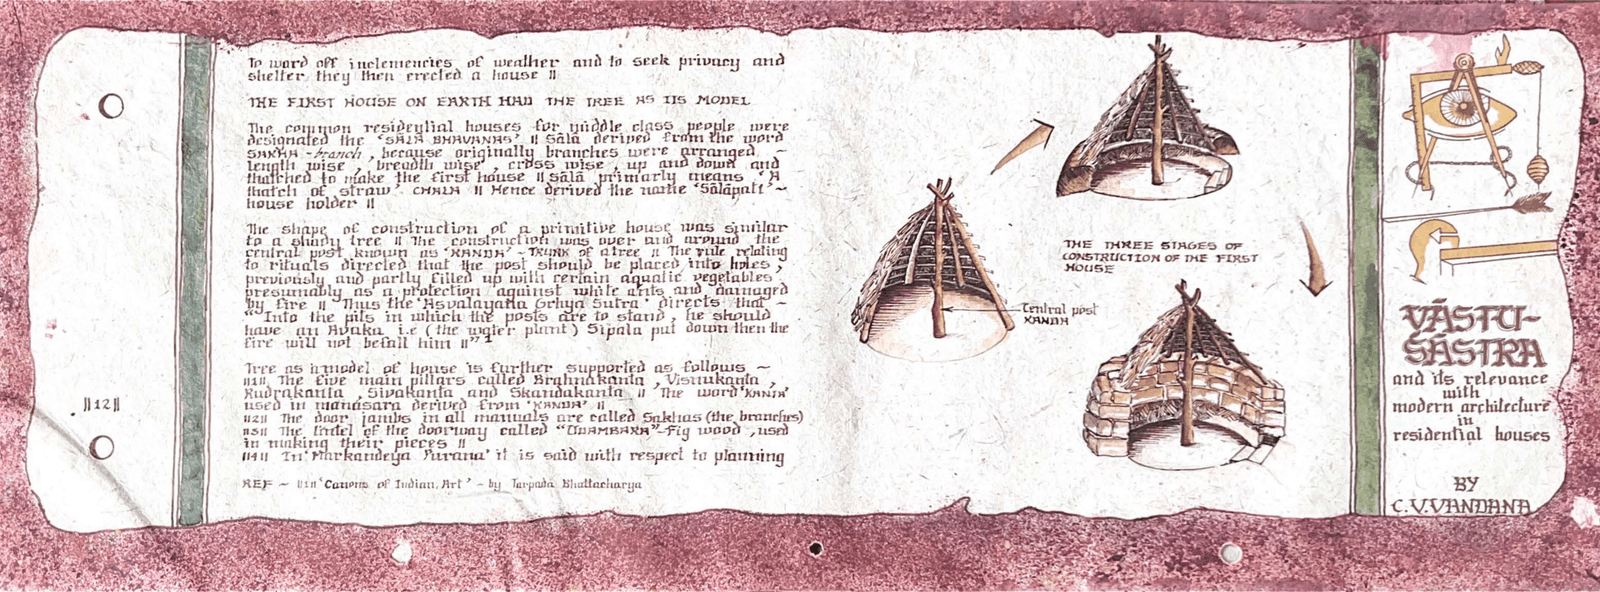 To word off inclemencies of weather and to seek privacy and
shelter they then erected a house ||
THE FIRST HOUSE ON EARTH HAD THE TREE AS ITS MODEL
The common residential houses for middle class people were
designated the 'SĀLĀ BHAVANAS' || Sālā derived from the word
SAKHA - branch, because originally branches were arranged, ~
length wise, breadth wise, cross wise, up and down and
thatched to make the first house || Sālā primarly means 'A
thatch of straw' CHALA || Hence derived the name 'Sālāpati' ~
house holder ||
The shape of construction of a primitive house was similar
to a shady tree || The construction was over and around the
central post known as 'KANDA' - TRUNK of a tree || The rule relating
to rituals directed that the post should be placed into holes,
previously and partly filled up with certain aquatic vegetables,
presumably as a protection against white ants and damaged
by fire || Thus the 'Asvalayatta Grhya Sutra' directs that ~
"Into the pits in which the posts are to stand, he should
have an Avaka i.e (the water plant) Sipala put down then the
fire will not befall him ||"1
Tree as a model of house is further supported as follows ~
||1|| The five main pillars called Brahmakanta, Visnukanta,
Rudrakanta, Sivakanta and Skandakanta || The word 'KANTA'
used in manasara derived from 'KANDA' ||
||2|| The door jambs in all manuals are called Sakhas (the branches)
||3|| The lintel of the doorway called "UDAMBARA" - Fig wood, used
in making their pieces ||
||4|| In 'Markandeya Purana' it is said with respect to planning
REF ~ ||1|| 'Canons of Indian Art' - by Tarpada Bhattacharya
||12||
THE THREE STAGES OF
CONSTRUCTION OF THE FIRST
HOUSE
Central post
KANDA
VĀSTU-
SĀSTRA
and its relevance
with
modern architecture
in
residential houses
BY
C.V.VANDANA